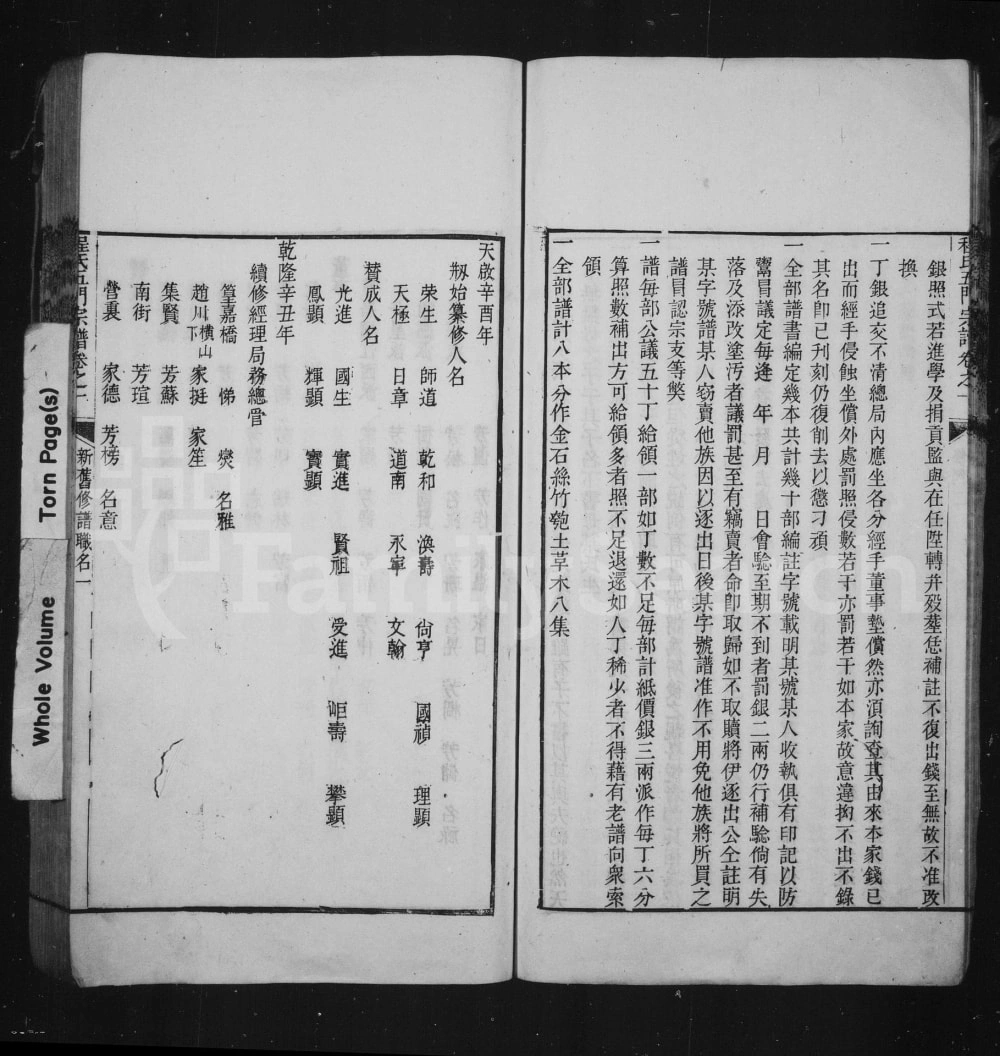 銀照式若進學及捐貢監與在任陞轉并殁塟恁補註不復出錢至無故不准改
換
一丁銀追交不清總局內應坐各分經手董事墊償然亦湏詢查其由來本家錢已
出而經手侵蝕坐償外處罰照侵數若干亦罰若干如本家故意違拘不出不錄
其名卽已刋刻仍復削去以懲刁頑
一全部譜書編定幾本共計幾十部編註字號載明某號某人收執俱有印記以防
鬻冒議定每逢 年 月 日會驗至期不到者罰銀二兩仍行補驗倘有失
落及添改塗汚者議罰甚至有竊賣者命卽取歸如不取贖將伊逐出公仝註明
某字號譜某人窃賣他族因以逐出日後某字號譜准作不用免他族將所買之
譜冒認宗支等獘
一譜每部公議五十丁給領一部如丁數不足每部計紙價銀三兩派作每丁六分
算照數補出方可給領多者照不足退還如人丁稀少者不得藉有老譜向衆索
領
一全部譜計八本分作金石絲竹匏土草木八集
程氏五門宗譜卷之一
天啟辛酉年
剏始纂修人名
荣生 師道 乾和 渙壽 尙亨 國禎 理顯
天極 日章 道南 永寕 文翰
賛成人名
光進 國生 實進 賢祖 爱進 岠壽 攀顯
鳳顯 輝顯 實顯
乾隆辛丑年
續修經理局務總管
篁嘉橋 悌 爕 名雅
趙川橫山下 家挺 家笙
集賢 芳蘇
南街 芳瑄
營裏 家德 芳榜 名意
程氏五門宗譜卷之一 新舊修譜職名一
Torn Page(s)
Whole Volume
FamilySearch